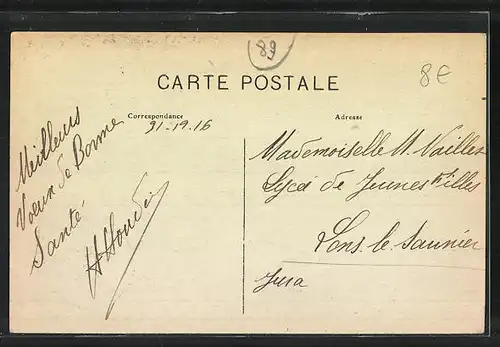 89
8€
CARTE POSTALE
Correspondance
Adresse
31-12-16
Meilleurs
Voeux de Bonne
Santé
Mademoiselle M.
Lycée de Jeunes filles
Lons-le-Saunier
Jura